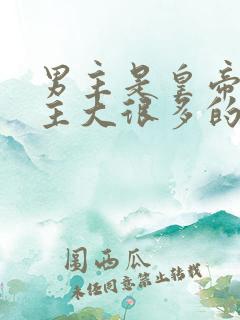 男主是皇帝
主大很多的
围西瓜
未经同意禁止转载